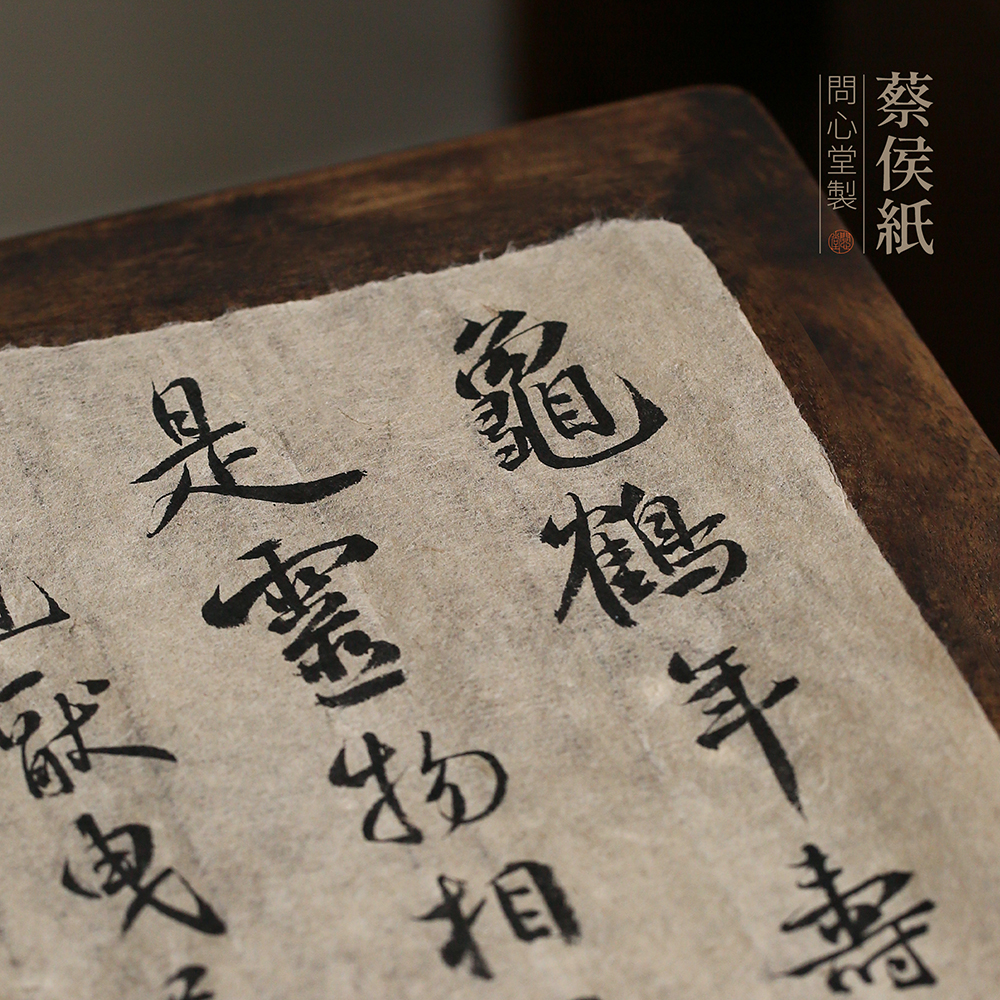 蔡侯紙
問心堂製
龜鶴年壽
是靈物相
猒曳